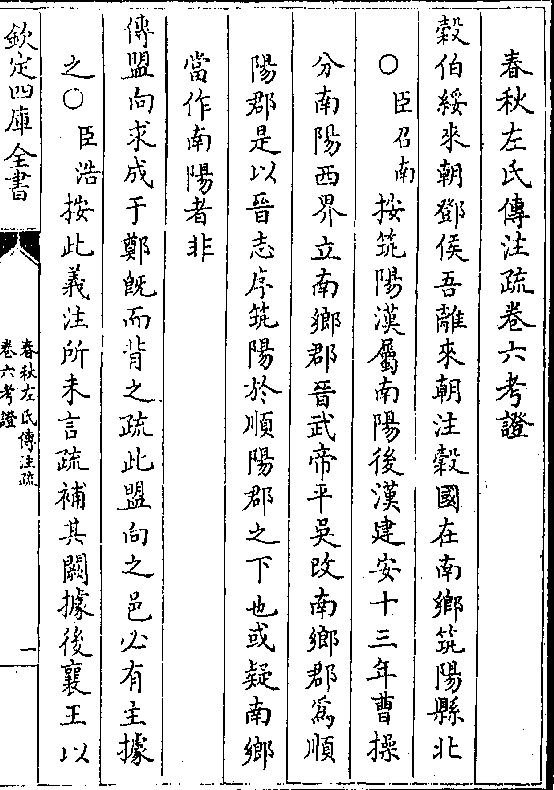 春秋左氏傳注疏卷六考證
穀伯綏來朝鄧侯吾離來朝注穀國在南鄉筑陽縣北
○臣召南按筑陽漢屬南陽後漢建安十三年曹操
分南陽西界立南鄉郡晉武帝平吳改南鄉郡為順
陽郡是以晉志序筑陽於順陽郡之下也或疑南鄉
當作南陽者非
傳盟向求成于鄭既而背之疏此盟向之邑必有主據
之○臣浩按此義注所未言疏補其闕據後襄王以
欽定四庫全書
春秋左氏傳注疏
卷六考證
一